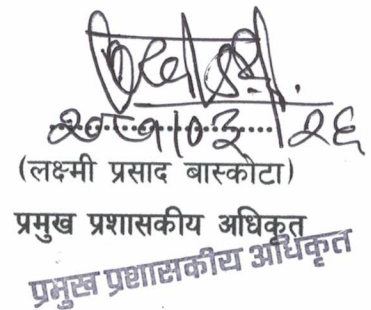 २०८१/०३/२६
(लक्ष्मी प्रसाद बास्कोटा)
प्रमुख प्रशासकीय अधिकृत
प्रमुख प्रशासकीय अधिकृत